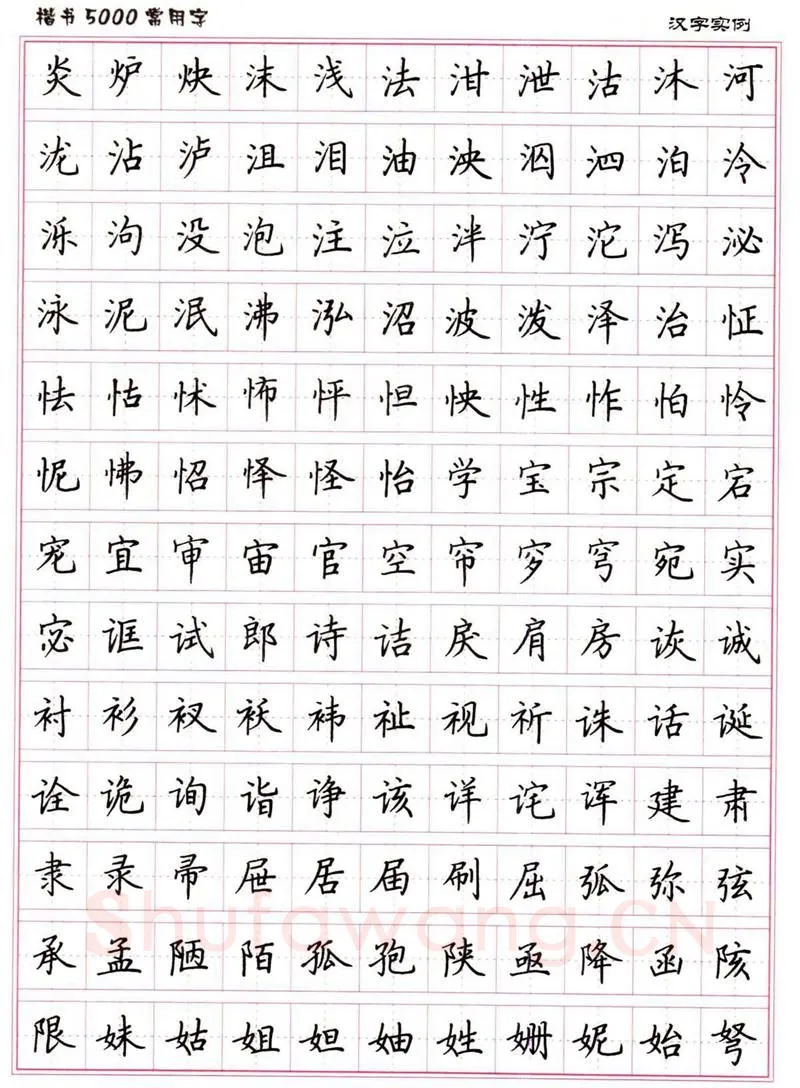 楷书5000常用字 汉字实例
炎炉炔沫浅法泔泄沽沐河
泷沾泸沮泪油泱泅泗泊泠
泺泃没泡注泣泮泞沱泻泌
泳泥泯沸泓沼波泼泽治怔
怯怙怵怖怦怛怏性怍怕怜
怩怫怊怿怪怡学宝宗定宕
宠宜审宙官空帘穸穹宛实
宓诓试郎诗诘戾肩房诙诚
衬衫衩袄袆祉视祈诛话诞
诠诡询诣诤该详诧诨建肃
隶录帚屉居届刷屈弧弥弦
承孟陋陌孤孢陕亟降函陔
限妹姑姐妲妯姓姗妮始弩
Shufawang.CN